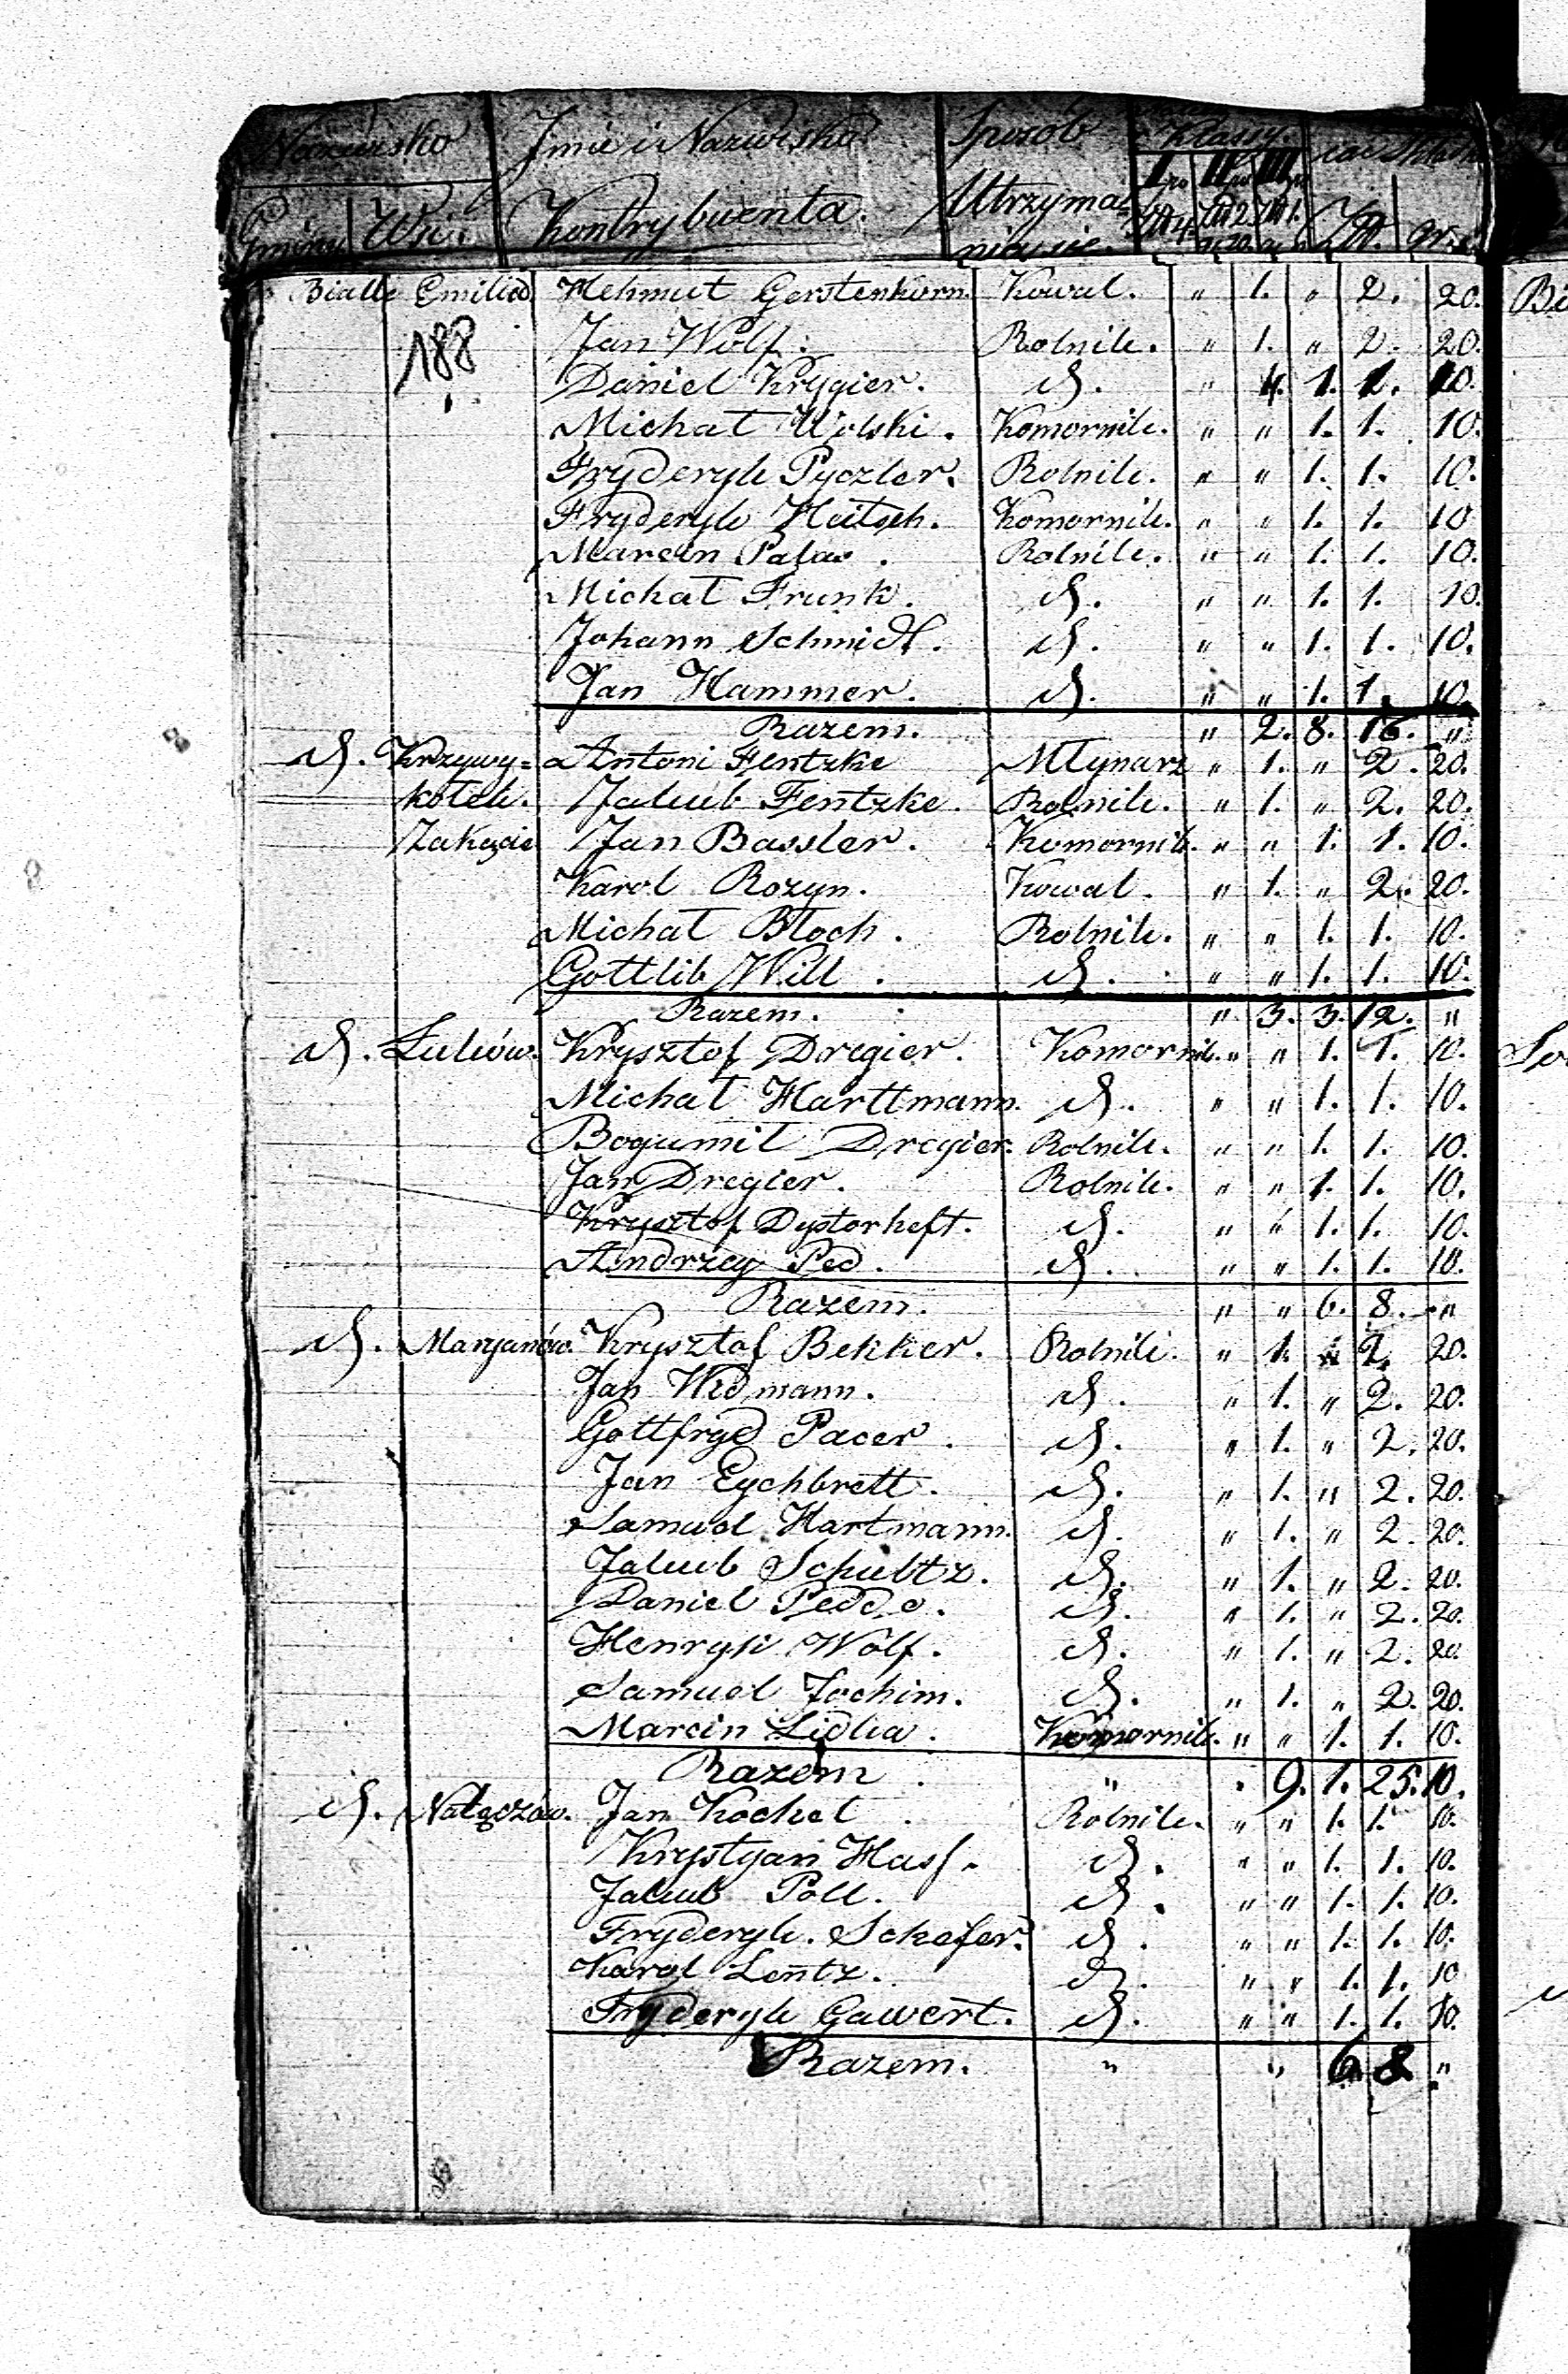 Nazwisko Imie i Nazwisko Sposób Klassy.
Gminy Wsi. Kontrybuenta. Utrzyma-
nia się. Zł. gr.
Bialle Emiliad. Helmut Gerstenkorn. Kowal. " 1. " 2. 20.
188 Jan Wolf. Rolnik. " 1. " 2. 20.
Daniel Krygier. d. " 1. 1. 10.
Michał Wolski. Komornik. " " 1. 1. 10.
Fryderyk Pyczler. Rolnik. " " 1. 1. 10.
Fryderyk Heitsch. Komornik. " " 1. 1. 10
Marcin Palas. Rolnik. " " 1. 1. 10.
Michał Frunk. d. " " 1. 1. 10.
Johann Schmidt. d. " " 1. 1. 10.
Jan Hammer. d. " " 1. 1. 10.
Razem. " 2. 8. 16. "
d. Krzywy= Antoni Fentzke Młynarz " 1. " 2. 20.
kołek. Jakub Fentzke. Rolnik. " 1. " 2. 20.
Zakącie Jan Bassler. Komornik. " " 1. 1. 10.
Karol Rozyn. Kowal. " 1. " 2. 20.
Michał Błoch. Rolnik. " " 1. 1. 10.
Gottlib Will. d. " " 1. 1. 10.
Razem. " 3. 3. 12. "
d. Luków. Krysztof Dregier. Komornik. " " 1. 1. 10.
Michał Harttmann. d. " " 1. 1. 10.
Bogumił Dregier. Rolnik. " " 1. 1. 10.
Jan Dregier. Rolnik. " " 1. 1. 10.
Krysztof Dystorheft. d. " " 1. 1. 10.
Andrzey Ped. d. " " 1. 1. 10.
Razem. " " 6. 8. "
d. Maryanów. Krysztof Bekker. Rolnik. " 1. " 2. 20.
Jan Widmann. d. " 1. " 2. 20.
Gottfryd Pacer. d. " 1. " 2. 20.
Jan Eychbrett. d. " 1. " 2. 20.
Samuel Hartmann. d. " 1. " 2. 20.
Jakub Schultz. d. " 1. " 2. 20.
Daniel Pedde. d. " 1. " 2. 20.
Henryk Wolf. d. " 1. " 2. 20.
Samuel Jochim. d. " 1. " 2. 20.
Marcin Lidka. Komornik. " " 1. 1. 10.
Razem " 9. 1. 25. 10.
d. Nałęczów. Jan Kochel Rolnik. " " 1. 1. 10.
Krystyan Hass. d. " " 1. 1. 10.
Jakub Poll. d. " " 1. 1. 10.
Fryderyk. Schefer. d. " " 1. 1. 10.
Karol Lentz. d. " " 1. 1. 10
Fryderyk Gawert. d. " " 1. 1. 10.
Razem. " " 6. 8. "